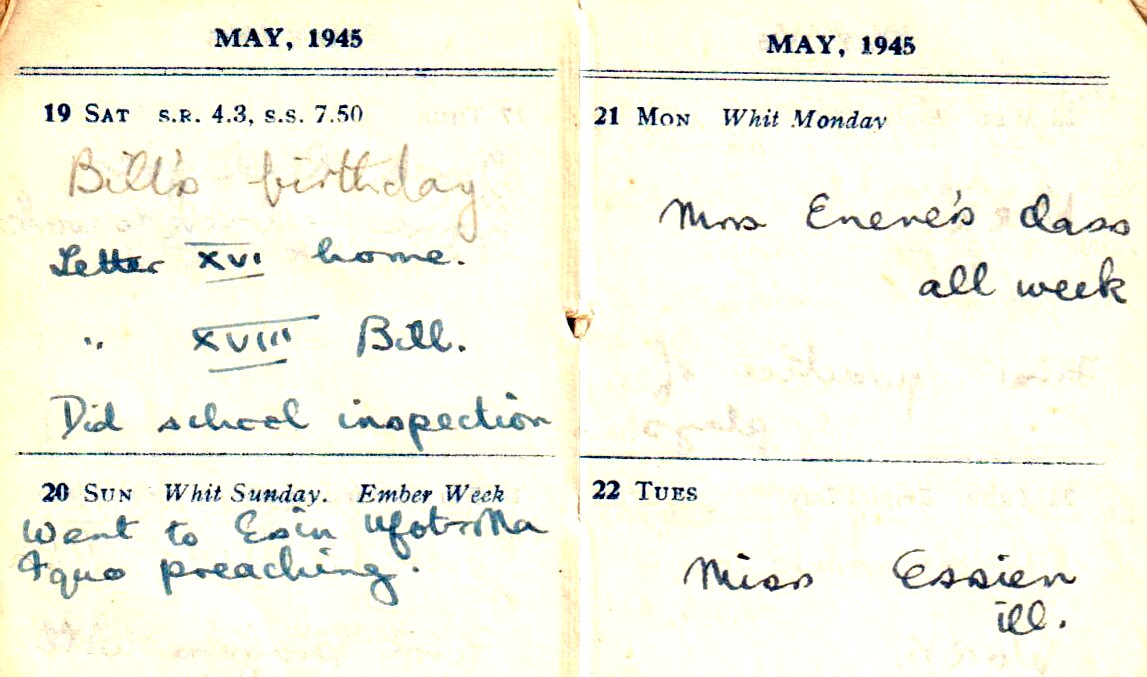 MAY, 1945
19 SAT S.R. 4.3, S.S. 7.50
Bill's birthday
Letter XVI home.
" XVIII Bill.
Did school inspection
20 SUN Whit Sunday. Ember Week
Went to Esin Ufot
Aquo preaching.
MAY, 1945
21 MON Whit Monday
Mrs Enene's class
all week
22 TUES
Miss Essien
ill.